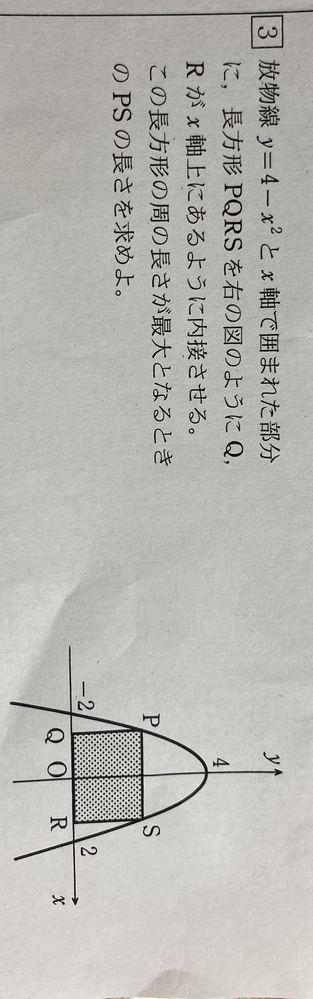 3 放物線 y=4-x² と x 軸で囲まれた部分
に，長方形 PQRS を右の図のように Q，
R が x 軸上にあるように内接させる。
この長方形の周の長さが最大となるとき
の PS の長さを求めよ。
y
4
P S
-2 2
Q O R x